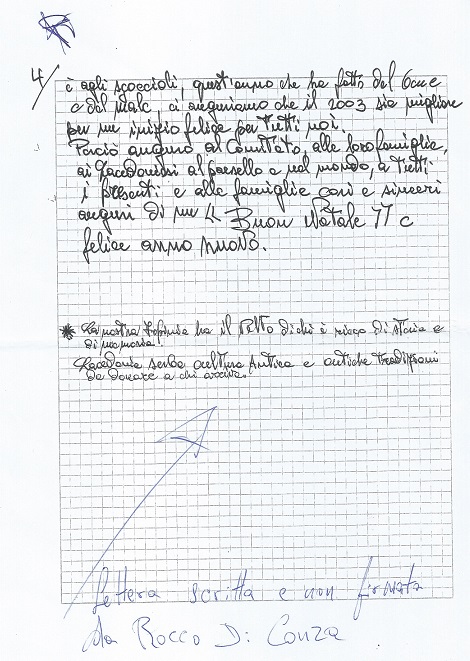 4/
è agli scoccioli, quest'anno che ha fatto del bene
e del male, ci auguriamo che il 2003 sia migliore
per un inizio felice per tutti noi.
Perciò auguro al Comitato, alle loro famiglie,
ai Lacedoniesi al paesello e nel mondo, a tutti
i presenti e alle famiglie cari e sinceri
auguri di un << Buon Natale >> e
felice anno nuovo.
* La nostra Irpinia ha il Petto di chi è ricco di storia e
di memoria!
Lacedonia serba cultura antica e antiche tradizioni
da donare a chi arriva.
Lettera scritta e non firmata
da Rocco Di Conza